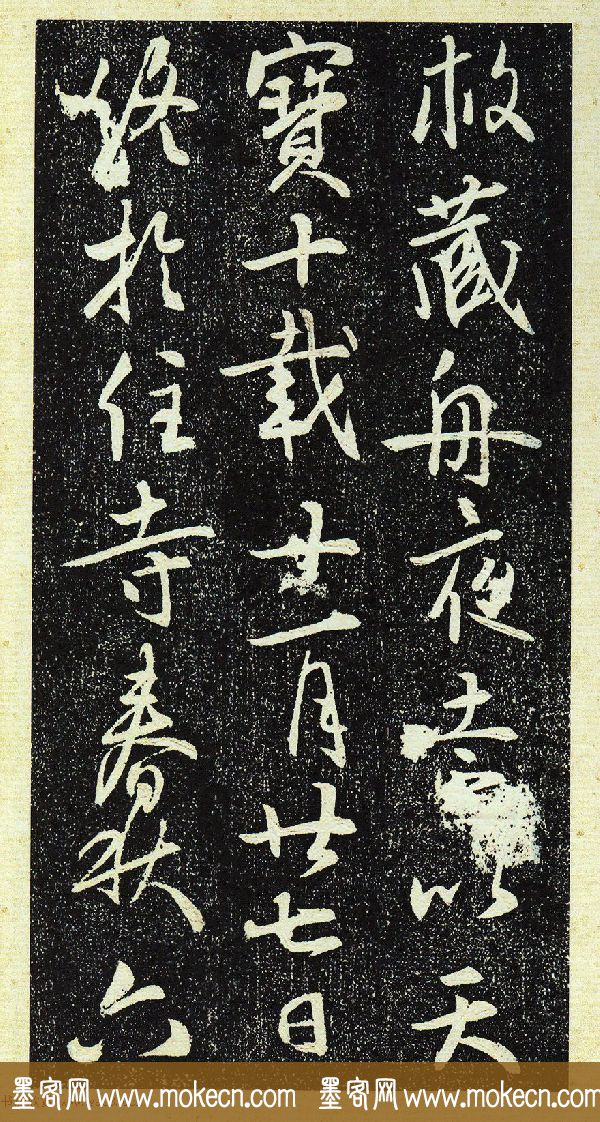 救藏舟夜以天
寶十載一月廿七日
終於住寺春秋六
墨客网 www.mokecn.com 墨客网 www.mokecn.com